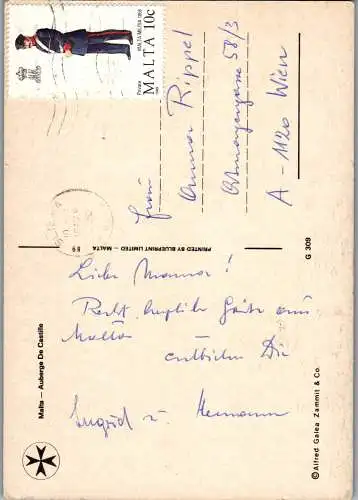 MALTA 10c
MALTA MILITIA 1889
Private
Frau
Rippel
58/3
A-1120 Wien
PRINTED BY BLUEPRINT LIMITED — MALTA
G 309
Malta — Auberge De Castille
© Alfred Galea Zammit & Co.
Recht herzliche Grüße aus
Malta
entbieten Dir
Ingrid u. Hermann